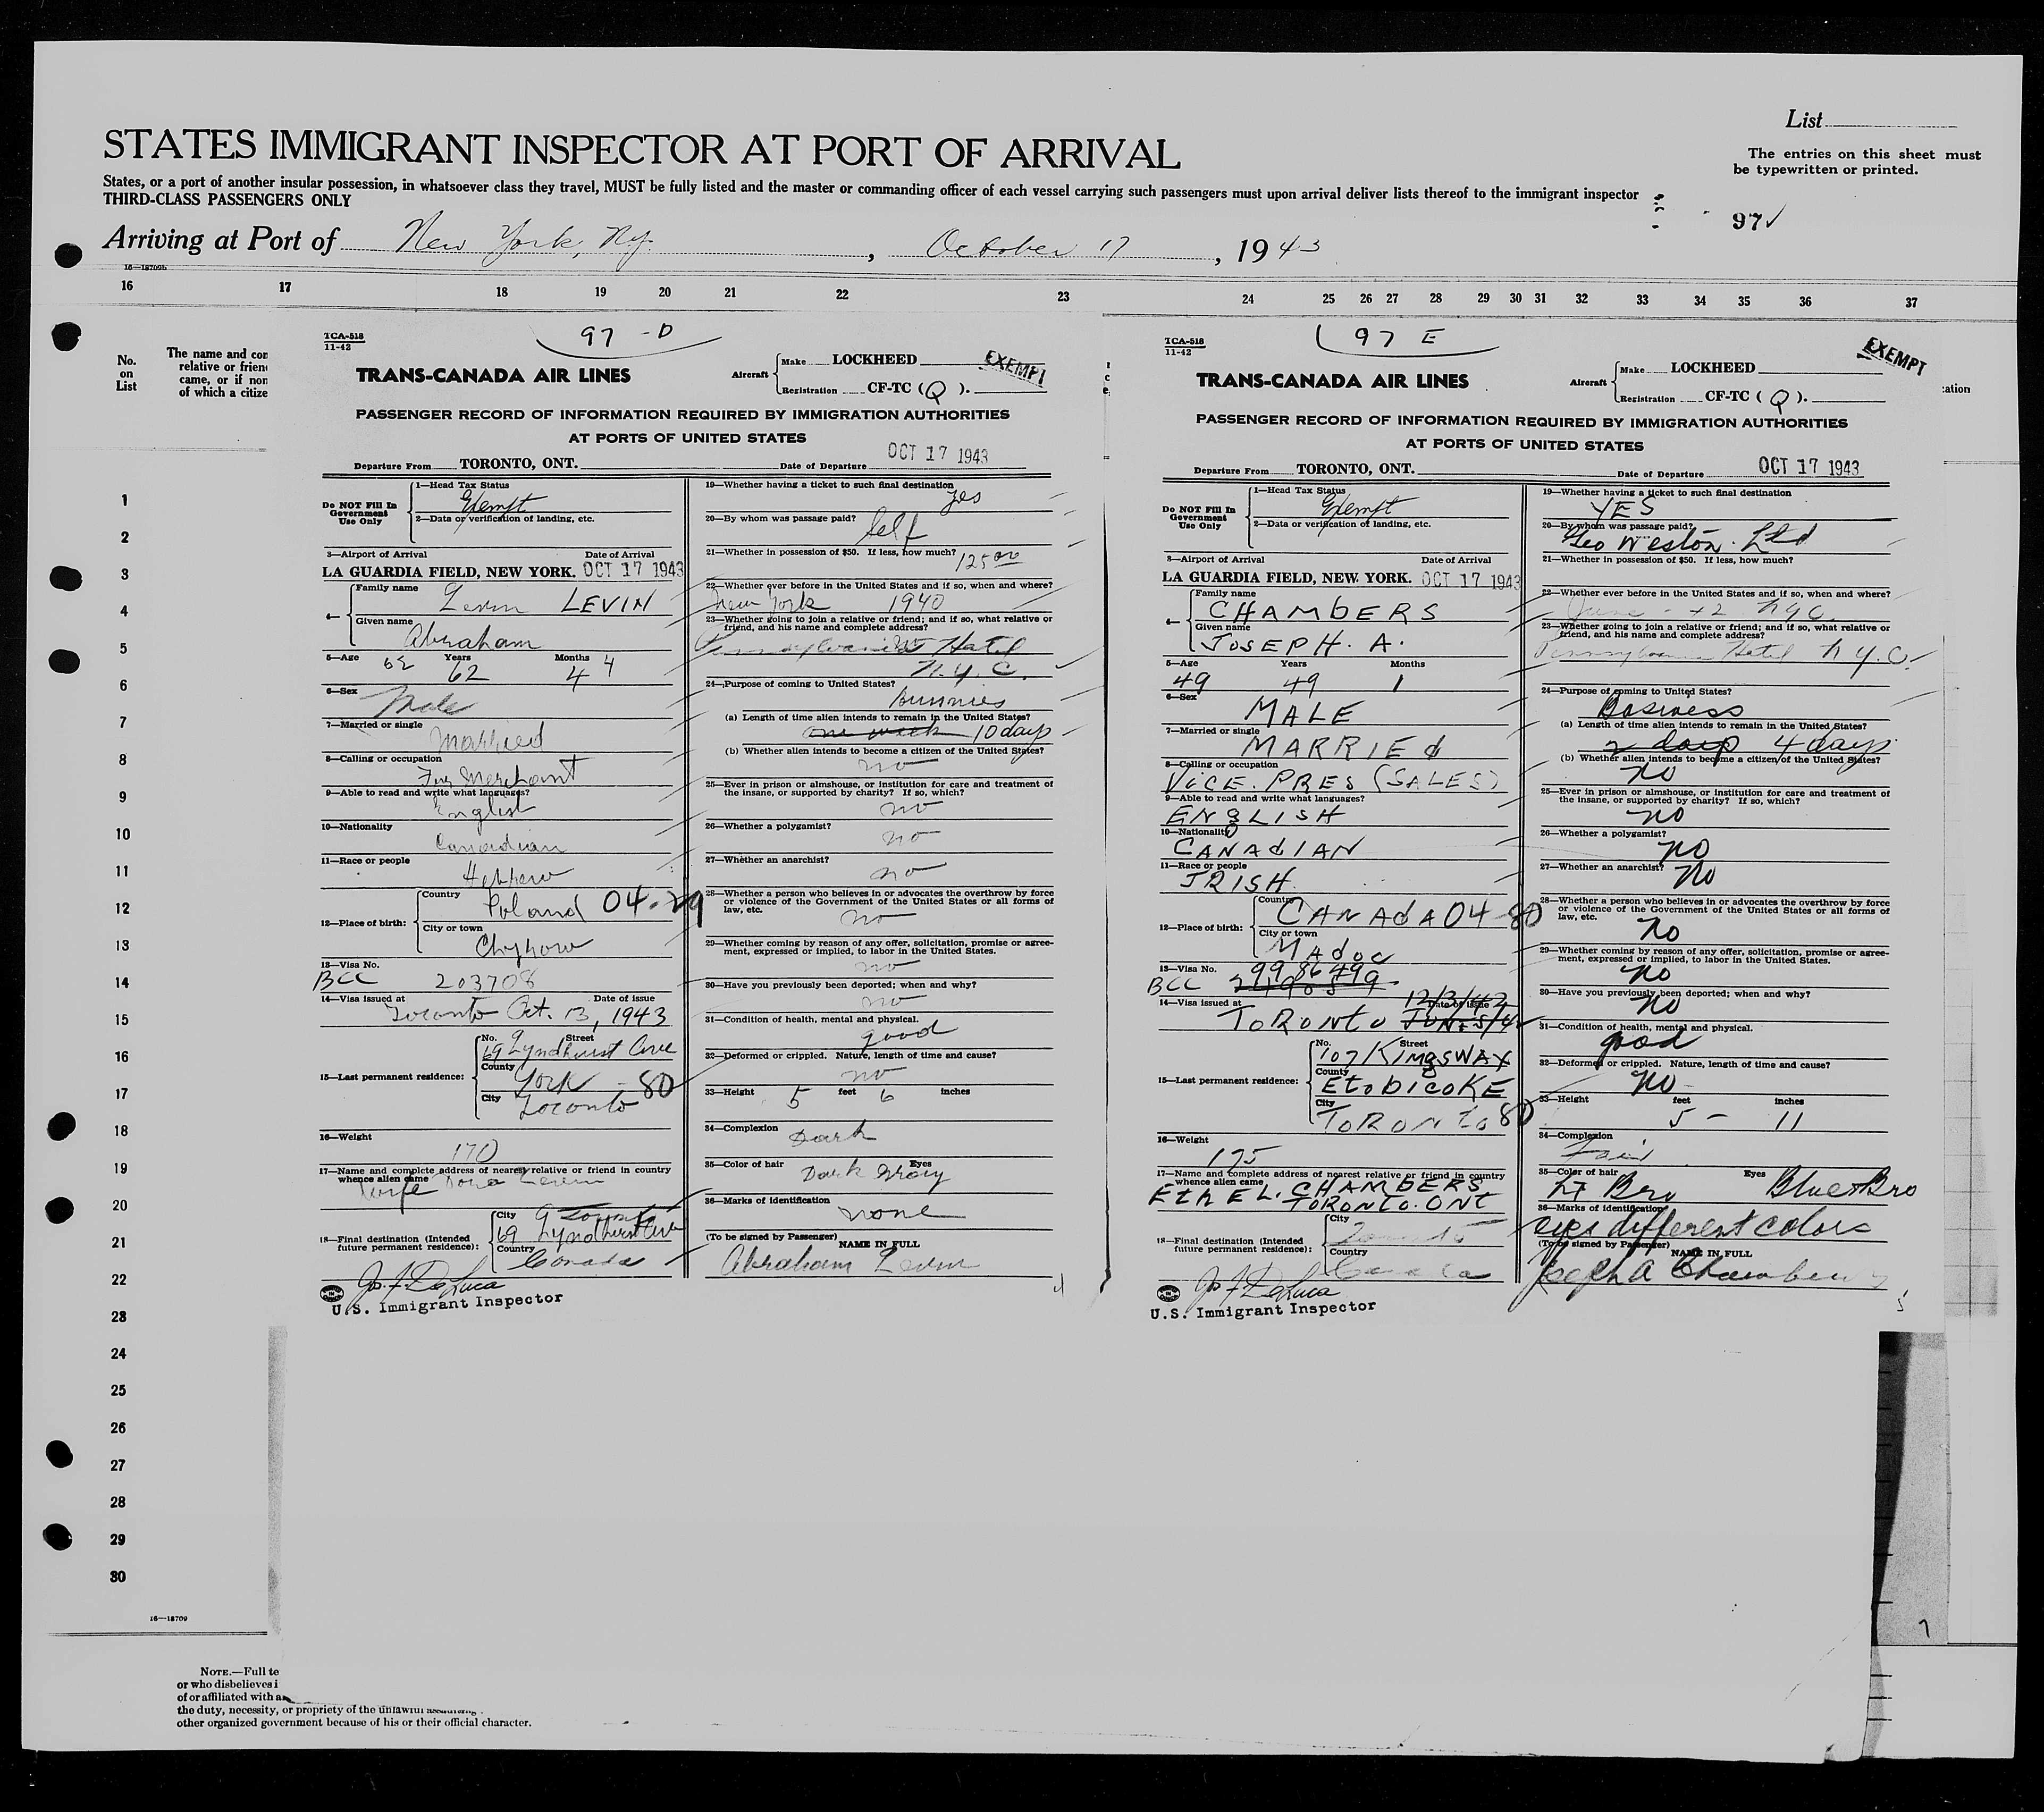 List
STATES IMMIGRANT INSPECTOR AT PORT OF ARRIVAL
The entries on this sheet must
be typewritten or printed.
States, or a port of another insular possession, in whatsoever class they travel, MUST be fully listed and the master or commanding officer of each vessel carrying such passengers must upon arrival deliver lists thereof to the immigrant inspector
THIRD-CLASS PASSENGERS ONLY
97✓
Arriving at Port of New York, N.Y. , October 17 , 1943
16—18709b
16 17 18 19 20 21 22 23 24 25 26 27 28 29 30 31 32 33 34 35 36 37
No.
on
List
The name and con
relative or frien
came, or if non
of which a citize
1
2
3
4
5
6
7
8
9
10
11
12
13
14
15
16
17
18
19
20
21
22
23
24
25
26
27
28
29
30
16—18709
NOTE.—Full te
or who disbelieves i
of or affiliated with a
the duty, necessity, or propriety of the unlawful
other organized government because of his or their official character.
TCA-518
11-42
97 -D
TRANS-CANADA AIR LINES
Aircraft
Make LOCKHEED
Registration CF-TC (Q).
EXEMPT
PASSENGER RECORD OF INFORMATION REQUIRED BY IMMIGRATION AUTHORITIES
AT PORTS OF UNITED STATES
Departure From TORONTO, ONT. Date of Departure OCT 17 1943
Do NOT Fill In
Government
Use Only
1—Head Tax Status
Exempt
2—Data or verification of landing, etc.
3—Airport of Arrival Date of Arrival
LA GUARDIA FIELD, NEW YORK. OCT 17 1943
4—
Family name
Levin LEVIN
Given name
Abraham
5—Age Years Months
62 62 4 4
6—Sex
Male
7—Married or single
Married
8—Calling or occupation
Fur Merchant
9—Able to read and write what languages?
English
10—Nationality
Canadian
11—Race or people
Hebrew
12—Place of birth:
Country
Poland 04-29
City or town
13—Visa No.
BCC 203708
14—Visa issued at Date of issue
Toronto Oct. 13, 1943
15—Last permanent residence:
No. Street
69 Lyndhurst Ave
County
York - 80
City
Toronto
16—Weight
170
17—Name and complete address of nearest relative or friend in country
whence alien came
Wife Dora Levin
18—Final destination (Intended
future permanent residence):
City
69 Lyndhurst Ave
Country
Canada
Jos. F. DeLuca
U.S. Immigrant Inspector
19—Whether having a ticket to such final destination
Yes
20—By whom was passage paid?
Self
21—Whether in possession of $50. If less, how much?
125.00
22—Whether ever before in the United States and if so, when and where?
New York 1940
23—Whether going to join a relative or friend; and if so, what relative or
friend, and his name and complete address?
Pennsylvania Hotel
N.Y.C.
24—Purpose of coming to United States?
(a) Length of time alien intends to remain in the United States?
one week 10 days
(b) Whether alien intends to become a citizen of the United States?
no
25—Ever in prison or almshouse, or institution for care and treatment of
the insane, or supported by charity? If so, which?
no
26—Whether a polygamist?
no
27—Whether an anarchist?
no
28—Whether a person who believes in or advocates the overthrow by force
or violence of the Government of the United States or all forms of
law, etc.
no
29—Whether coming by reason of any offer, solicitation, promise or agree-
ment, expressed or implied, to labor in the United States.
no
30—Have you previously been deported; when and why?
no
31—Condition of health, mental and physical.
good
32—Deformed or crippled. Nature, length of time and cause?
no
33—Height 5 feet 6 inches
34—Complexion
Dark
35—Color of hair Eyes
Dark Gray
36—Marks of identification
none
(To be signed by Passenger)
NAME IN FULL
Abraham Levin
4
TCA-518
11-42
97 E
TRANS-CANADA AIR LINES
Aircraft
Make LOCKHEED
Registration CF-TC (Q).
EXEMPT
ation
PASSENGER RECORD OF INFORMATION REQUIRED BY IMMIGRATION AUTHORITIES
AT PORTS OF UNITED STATES
Departure From TORONTO, ONT. Date of Departure OCT 17 1943
Do NOT Fill In
Government
Use Only
1—Head Tax Status
Exempt
2—Data or verification of landing, etc.
3—Airport of Arrival Date of Arrival
LA GUARDIA FIELD, NEW YORK. OCT 17 1943
4—
Family name
CHAMBERS
Given name
JOSEPH. A.
5—Age Years Months
49 49 1
6—Sex
MALE
7—Married or single
MARRIEd
8—Calling or occupation
VICE. PRES (SALES)
9—Able to read and write what languages?
ENGLISH
10—Nationality
CANAdIAN
11—Race or people
IRISH.
12—Place of birth:
Country
CANAdA 04-80
City or town
MAdoc
13—Visa No.
BCC 998649
14—Visa issued at Date of issue
TORONTO 12/3/42
15—Last permanent residence:
No. Street
107 KINGSWAY
County
EtobicoKE
City
TORONTO 80
16—Weight
175
17—Name and complete address of nearest relative or friend in country
whence alien came
EthEL. CHAMBERS
TORONTO. ONT
18—Final destination (Intended
future permanent residence):
City
Toronto
Country
Canada
Jos. F. DeLuca
U.S. Immigrant Inspector
19—Whether having a ticket to such final destination
YES
20—By whom was passage paid?
Geo Weston. Ltd
21—Whether in possession of $50. If less, how much?
22—Whether ever before in the United States and if so, when and where?
June - 42 NYC.
23—Whether going to join a relative or friend; and if so, what relative or
friend, and his name and complete address?
Pennsylvania Hotel N.Y.C.
24—Purpose of coming to United States?
Business
(a) Length of time alien intends to remain in the United States?
2 days 4 days
(b) Whether alien intends to become a citizen of the United States?
no
25—Ever in prison or almshouse, or institution for care and treatment of
the insane, or supported by charity? If so, which?
no
26—Whether a polygamist?
no
27—Whether an anarchist?
No
28—Whether a person who believes in or advocates the overthrow by force
or violence of the Government of the United States or all forms of
law, etc.
No
29—Whether coming by reason of any offer, solicitation, promise or agree-
ment, expressed or implied, to labor in the United States.
No
30—Have you previously been deported; when and why?
No
31—Condition of health, mental and physical.
good
32—Deformed or crippled. Nature, length of time and cause?
No
33—Height feet inches
5 - 11
34—Complexion
Fair
35—Color of hair Eyes
Lt Bro Blue & Bro
36—Marks of identification
eyes different colors
(To be signed by Passenger)
NAME IN FULL
Joseph A Chambers
5
7